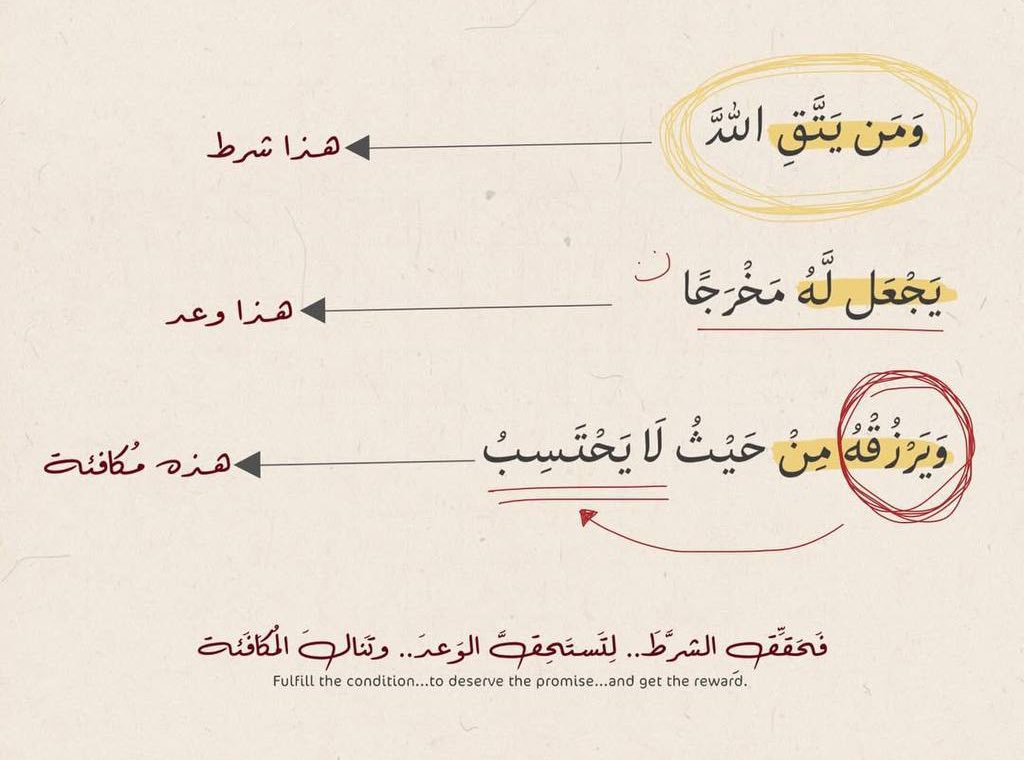 وَمَن يَتَّقِ اللَّهَ
هذا شرط
يَجْعَل لَّهُ مَخْرَجًا ن
هذا وعد
وَيَرْزُقْهُ مِنْ حَيْثُ لَا يَحْتَسِبُ
هذه مُكافئة
فَحَقِّق الشرَّطَ.. لِتَستَحِقَّ الوَعدَ.. وتَنالَ المُكَافَئة
Fulfill the condition...to deserve the promise...and get the reward.